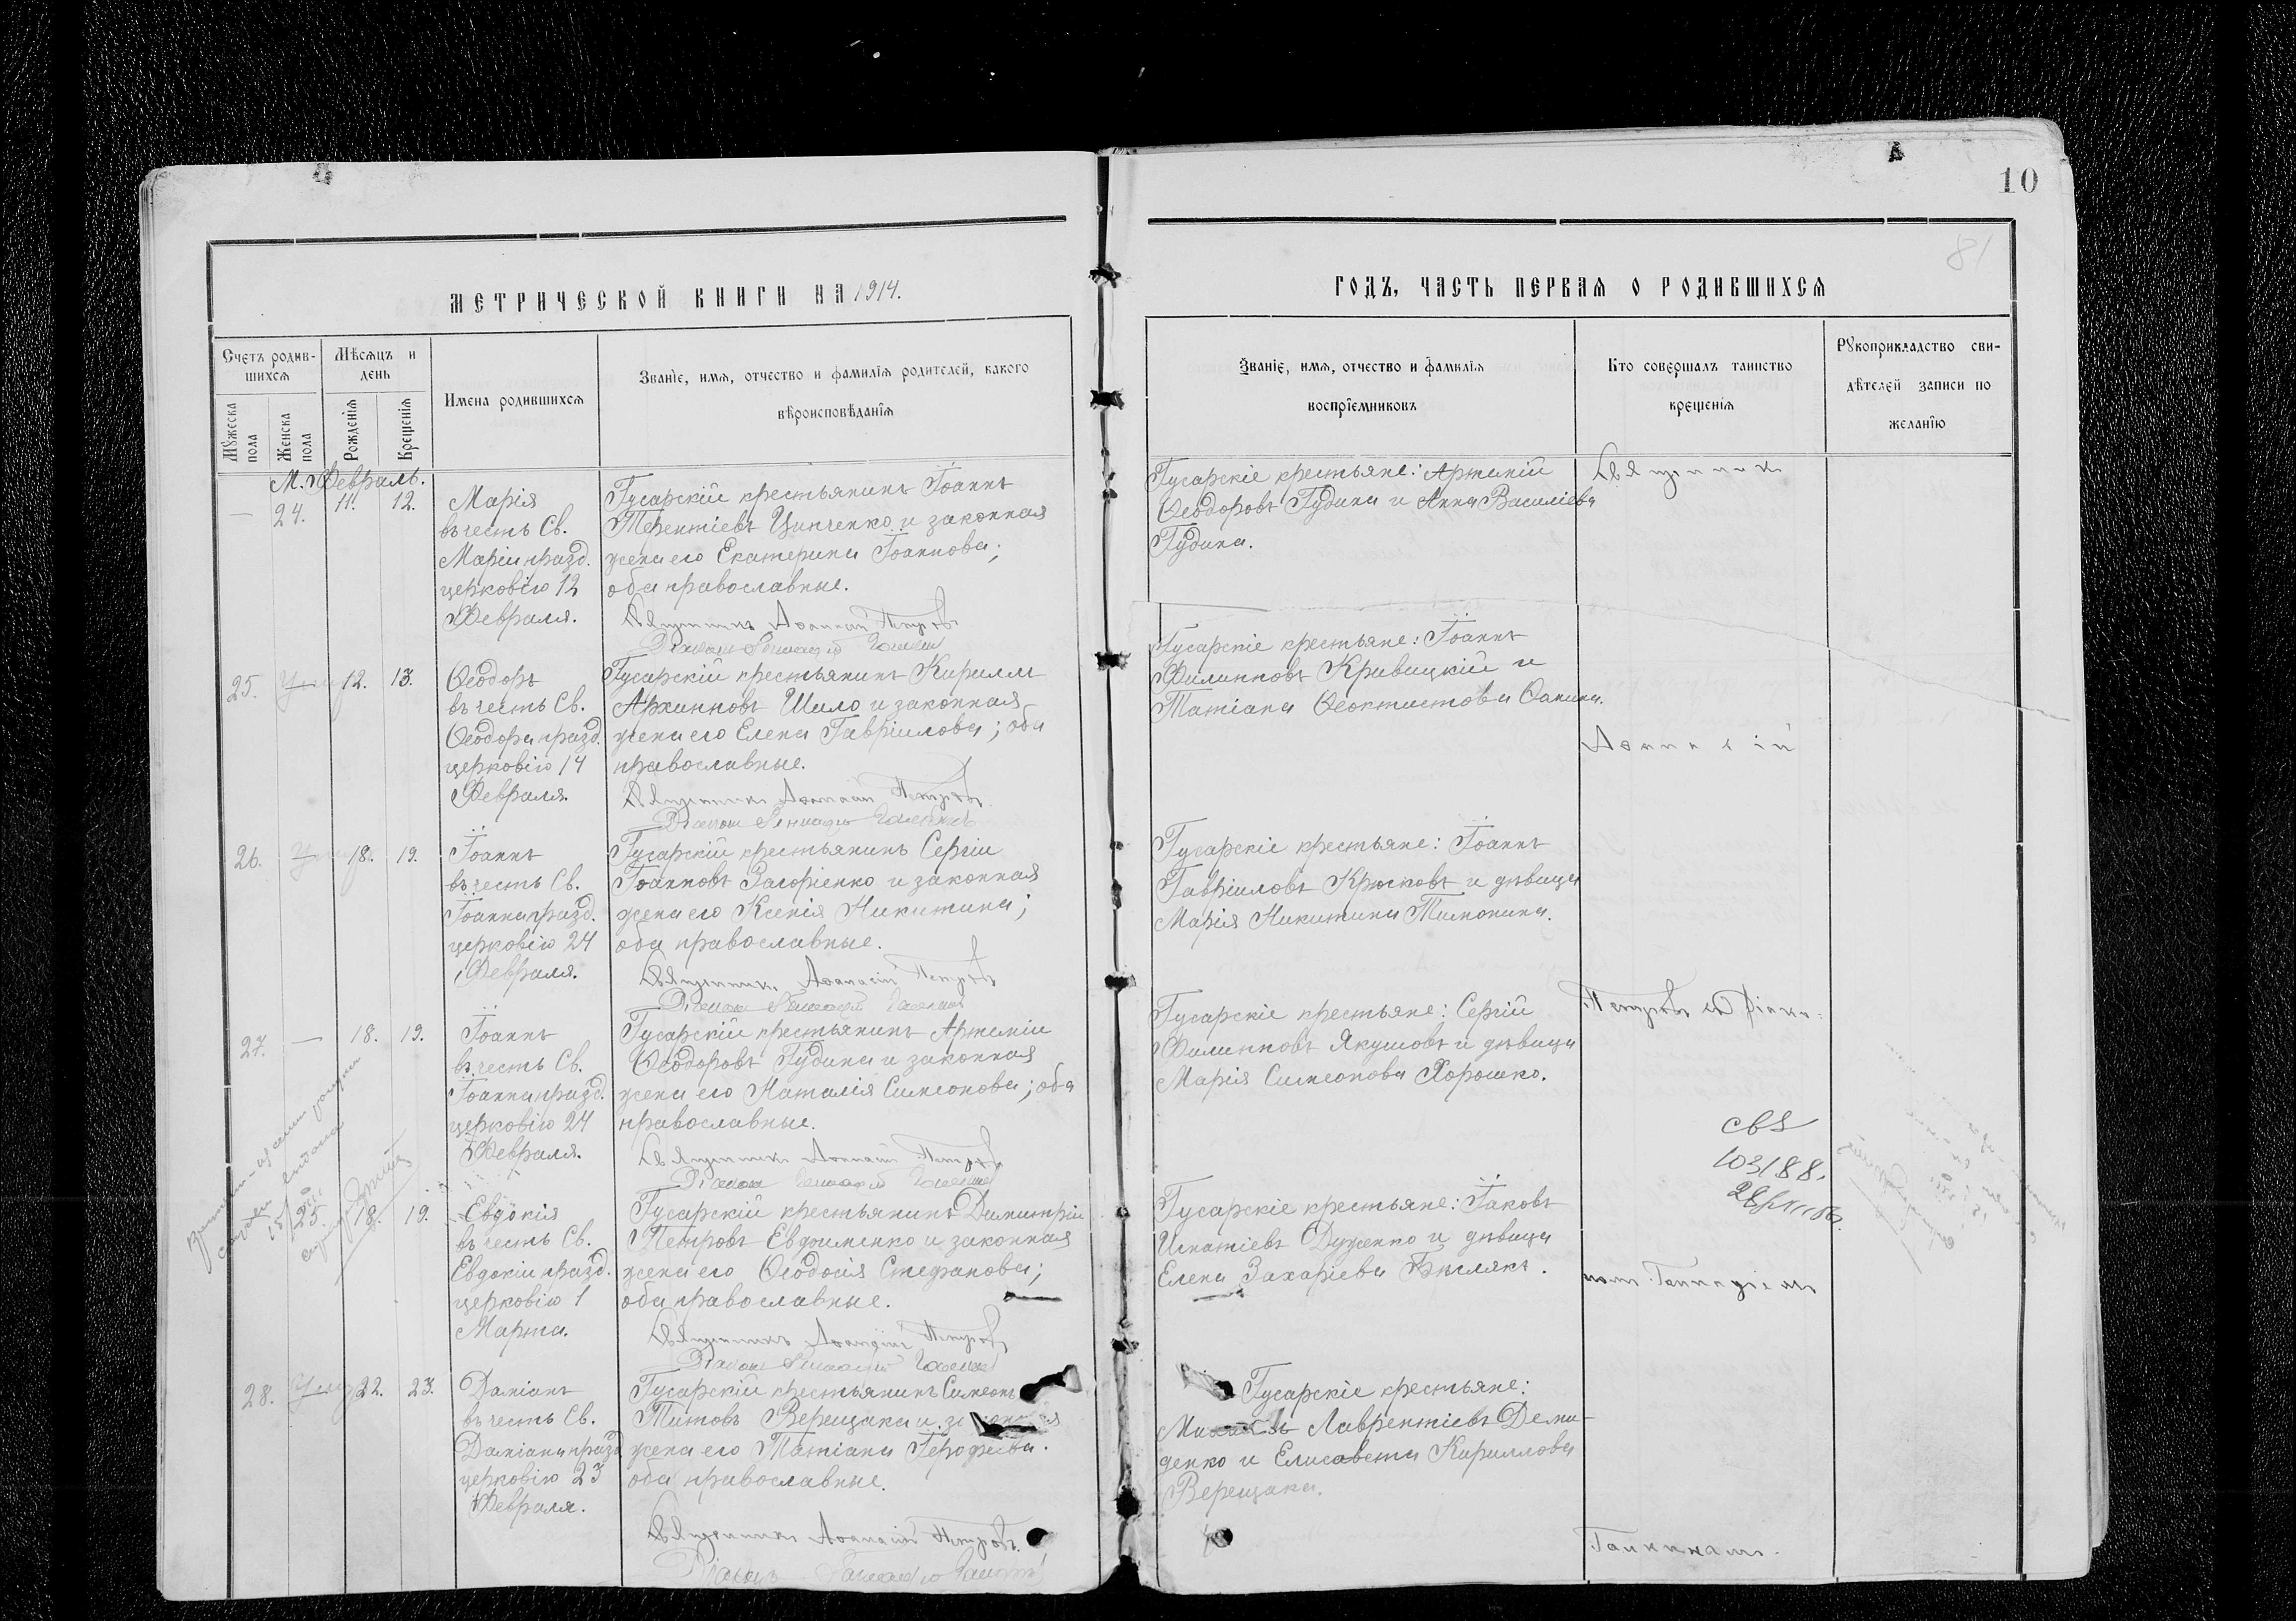 10
81
МЕТРИЧЕСКОЙ КНИГИ НА 1914.
ГОДЪ, ЧАСТЬ ПЕРВАЯ О РОДИВШИХСЯ
Счетъ родив-
шихся
Мѣсяцъ и
день
Мужеска пола
Женска пола
Рожденія
Крещенія
Имена родившихся
Званіе, имя, отчество и фамилія родителей, какого
вѣроисповѣданія
Званіе, имя, отчество и фамилія
воспріемниковъ
Кто совершалъ таинство
крещенія
Рукоприкладство сви-
дѣтелей записи по
желанію
М. Февраль.
— 24. 11. 12.
Марія
въ честь Св.
Маріи празд.
церковію 12
Февраля.
Гусарскій крестьянинъ Іоаннъ
Терентіевъ Цинченко и законная
жена его Екатерина Іоаннова;
оба православные.
Священникъ Аѳанасій Петровъ
Гусарскіе крестьяне: Артемій
Ѳеодоровъ Гудина и Анна Василіева
Гудина.
Священникъ
25. 12. 13.
Ѳеодоръ
въ честь Св.
Ѳеодора празд.
церковію 14
Февраля.
Гусарскій крестьянинъ Кириллъ
Архипповъ Шило и законная
жена его Елена Гавріилова; оба
православные.
Священникъ Аѳанасій Петровъ
Гусарскіе крестьяне: Іоаннъ
Филипповъ Кривицкій и
Татіана Ѳеоктистова
Аѳанасій
26. 18. 19.
Іоаннъ
въ честь Св.
Іоанна празд.
церковію 24
Февраля.
Гусарскій крестьянинъ Сергій
Іоанновъ Загоріенко и законная
жена его Ксенія Никитина;
оба православные.
Священникъ Аѳанасій Петровъ
Гусарскіе крестьяне: Іоаннъ
Гавріиловъ Крюковъ и дѣвица
Марія Никитина Тимонина.
27. — 18. 19.
Іоаннъ
въ честь Св.
Іоанна празд.
церковію 24
Февраля.
Гусарскій крестьянинъ Артемій
Ѳеодоровъ Гудина и законная
жена его Наталія Симеонова; оба
православные.
Священникъ Аѳанасій Петровъ
Гусарскіе крестьяне: Сергій
Филипповъ Якушовъ и дѣвица
Марія Симеонова Хорошко.
Петровъ съ діако-
25. 18. 19.
Евдокія
въ честь Св.
Евдокіи празд.
церковію 1
Марта.
Гусарскій крестьянинъ Димитрій
Петровъ Евдоименко и законная
жена его Ѳеодосія Стефанова;
оба православные.
Священникъ Аѳанасій Петровъ
Гусарскіе крестьяне: Іаковъ
Игнатіевъ Дуженко и дѣвица
Елена Захаріева
номъ Геннадіемъ
28. 22. 23.
Даміанъ
въ честь Св.
Даміана празд.
церковію 23
Февраля.
Гусарскій крестьянинъ Симеонъ
Титовъ Верещака и
жена его Татіана Іерофеева.
оба православные.
Священникъ Аѳанасій Петровъ.
Гусарскіе крестьяне:
Лаврентіевъ Деми-
денко и Елисавета Кириллова
Верещака.
Галкинымъ.